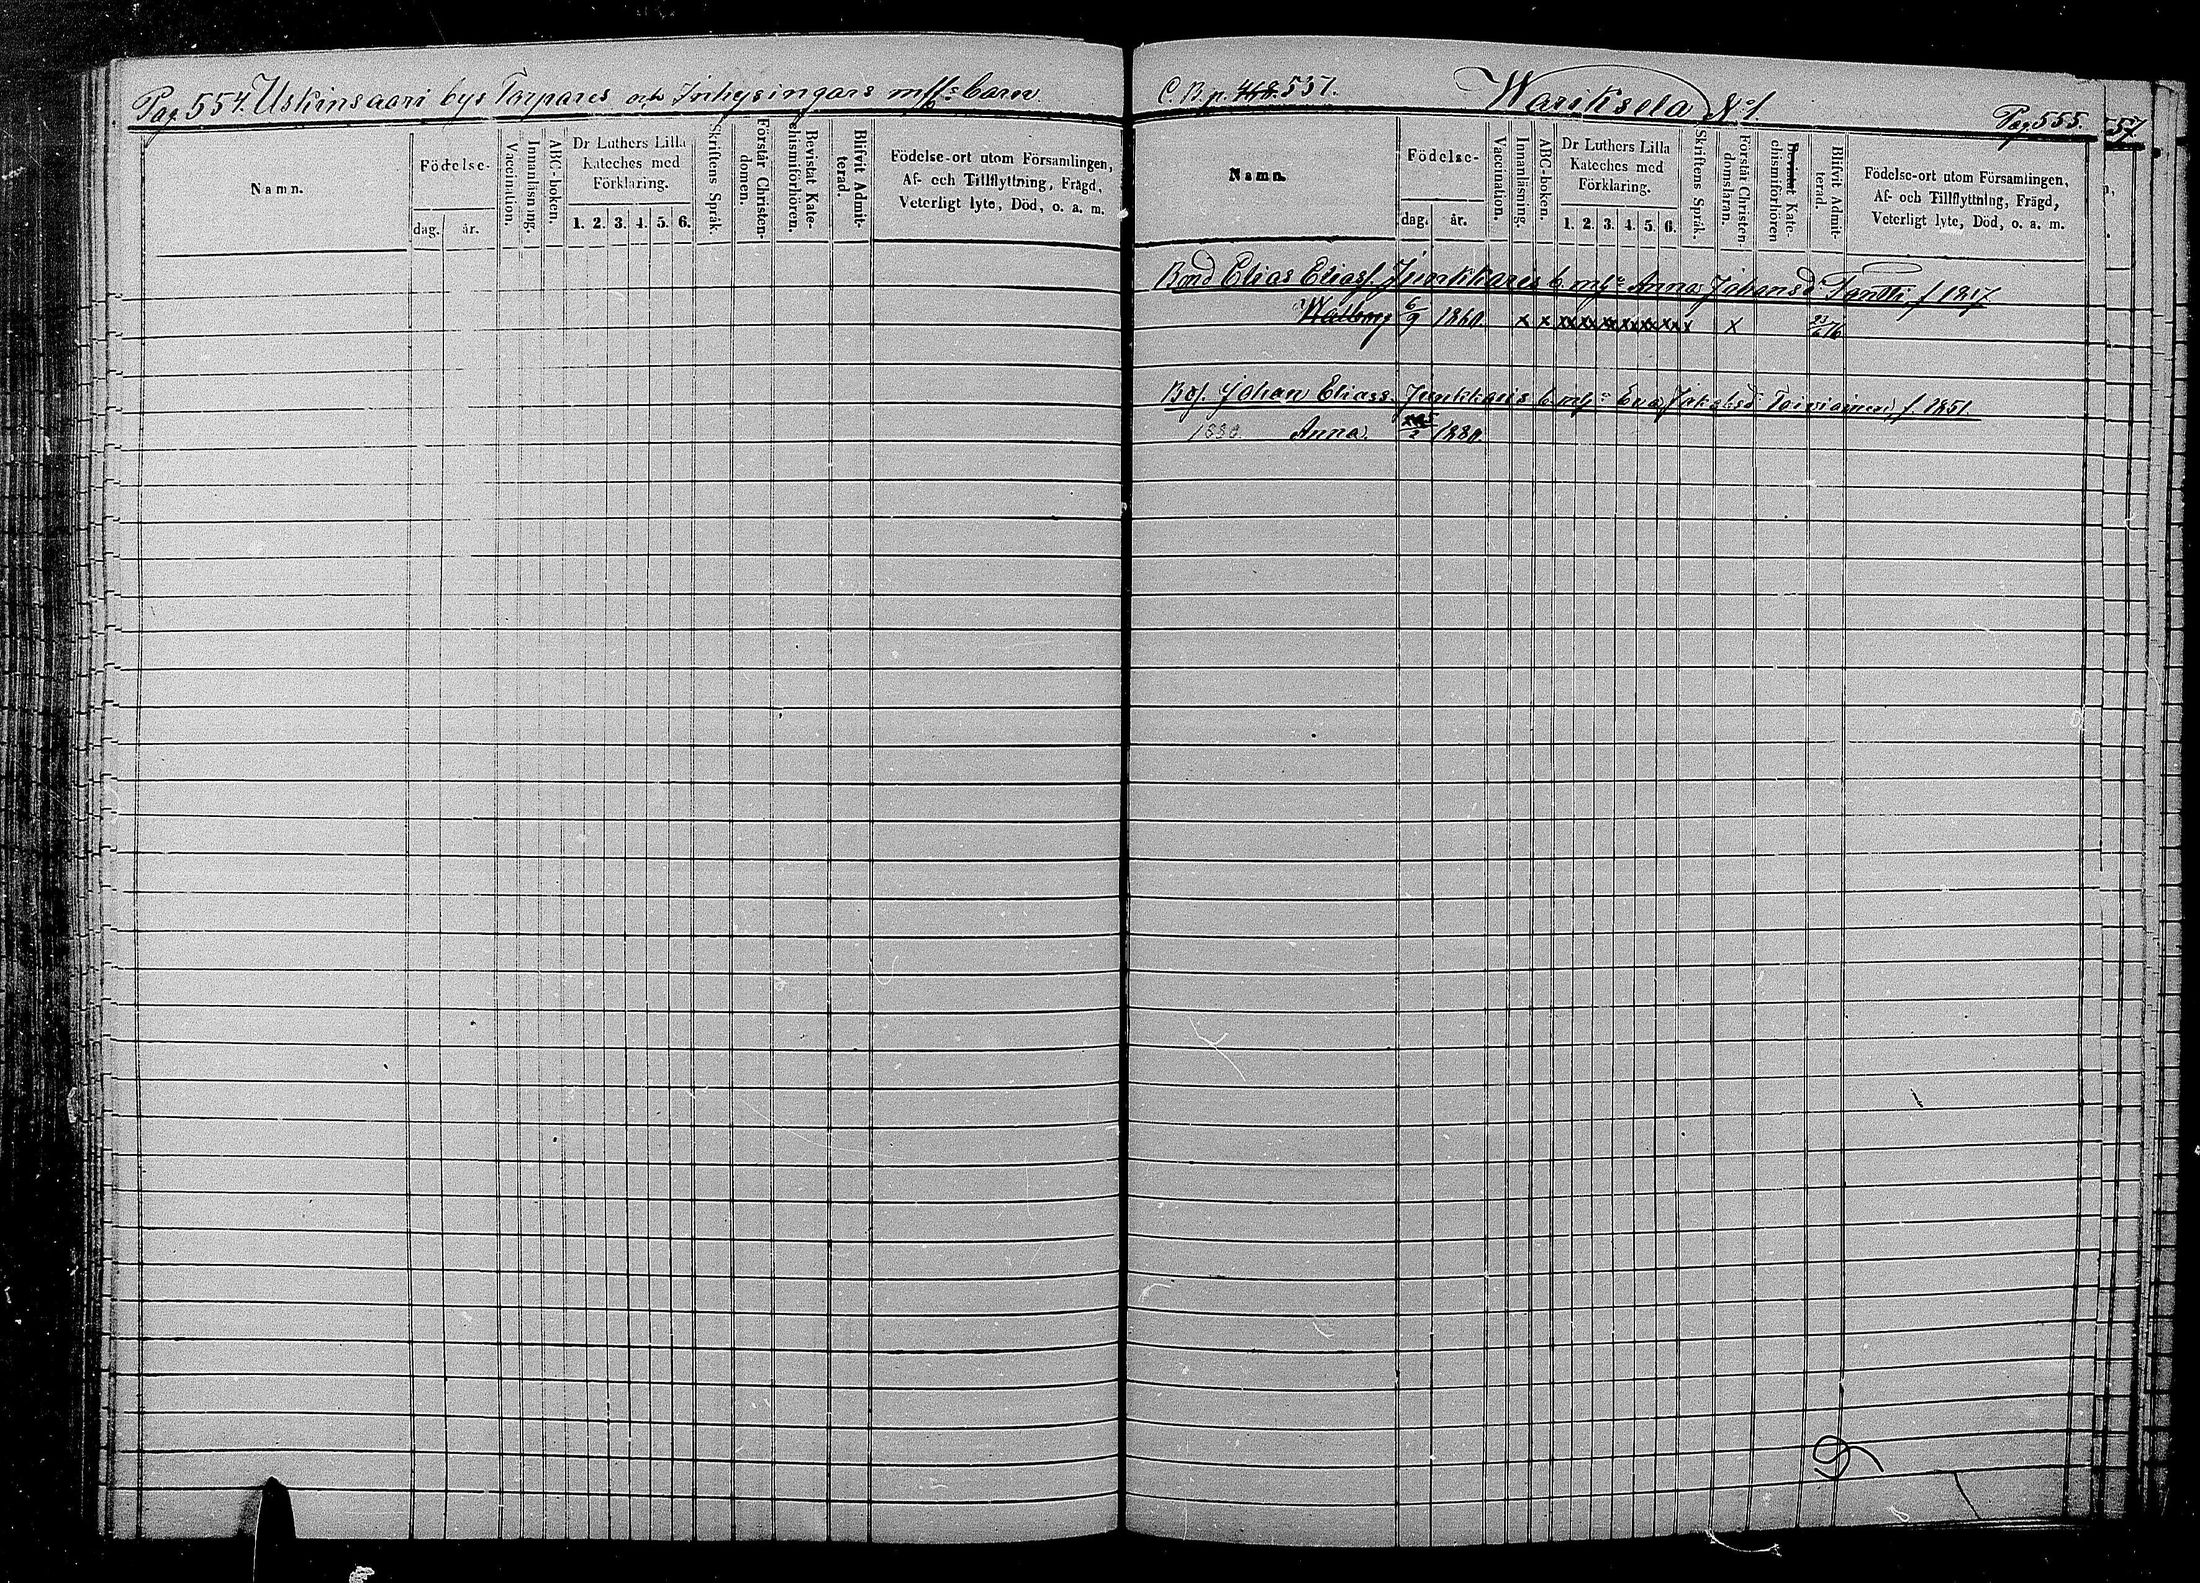 Pag. 554. Uskinsaari bys Torpares och Inhysingars m ffs barn
Namn.
Födelse-
dag. år.
Vaccination.
Innanläsning.
ABC-boken.
Dr Luthers Lilla Kateches med Förklaring.
1. 2. 3. 4. 5. 6.
Skriftens Språk
Förstår Christendomen.
Bevistat Katechismiförhören.
Blifvit Admitterad.
Födelse-ort utom Församlingen,
Af- och Tillflyttning, Frägd,
Veterligt lyte, Död, o. a. m.
C. B. p. 468. 537. Wariksela No 1. Pag. 555.
57
Namn.
Födelse-
dag. år.
Vaccination.
Innanläsning.
ABC-boken.
Dr Luthers Lilla Kateches med Förklaring.
1. 2. 3. 4. 5. 6.
Skriftens Språk.
Förstår Christendomsläran.
Bevistat Katechismiförhören
Blifvit Admitterad.
Födelse-ort utom Församlingen,
Af- och Tillflyttning, Frägd,
Veterligt lyte, Död, o. a. m.
Bond Elias Eliass. Junkkares b. m. fr Anna Johansd. Tantti f 1817.
Walborg 6/9 1860. x x xx xx xx xx xx xx x x 23/6 16
Bof. Johan Eliass. Junkkaris b. m fr Eva Jakobsd Toiviainen f. 1851.
1880. Anna. /2 1880.